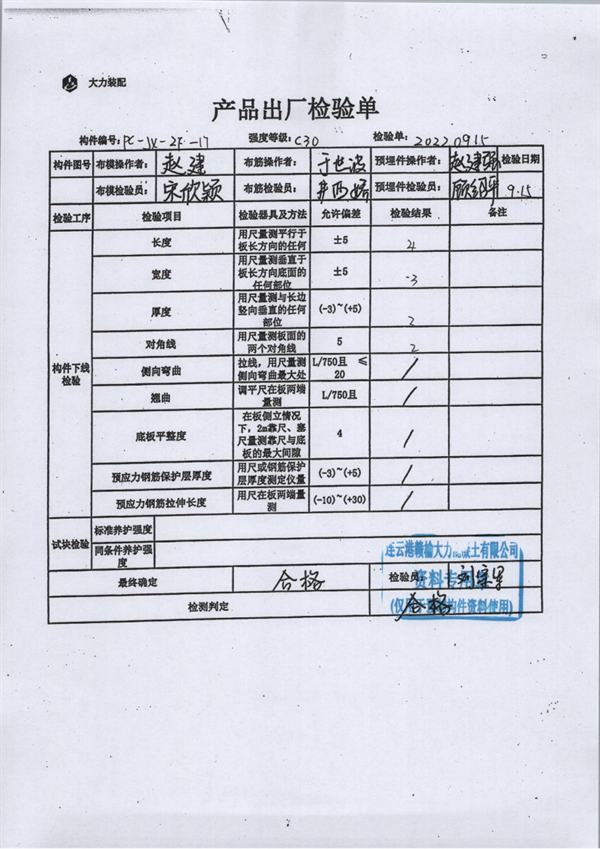 大力装配
产品出厂检验单
构件编号: PC-JX-2F-17 强度等级: C30 检验单: 20220915
构件图号 布模操作者: 赵建 布筋操作者: 于世波 预埋件操作者: 赵建强 检验日期
布模检验员: 宋欣颖 布筋检验员: 预埋件检验员: 9.15
检验工序 检验项目 检验器具及方法 允许偏差 检验结果 备注
构件下线检验
长度 用尺量测平行于板长方向的任何 ±5 4
宽度 用尺量测垂直于板长方向底面的任何部位 ±5 -3
厚度 用尺量测与长边竖向垂直的任何部位 (-3)~(+5) 2
对角线 用尺量测板面的两个对角线 5 2
侧向弯曲 拉线,用尺量测侧向弯曲最大处 L/750且 ≤20 /
翘曲 调平尺在板两端量测 L/750且 /
底板平整度 在板侧立情况下,2m靠尺、塞尺量测靠尺与底板的最大间隙 4 /
预应力钢筋保护层厚度 用尺或钢筋保护层厚度测定仪量 (-3)~(+5) /
预应力钢筋拉伸长度 用尺在板两端量测 (-10)~(+30) /
试块检验 标准养护强度
同条件养护强度
连云港赣榆大力土有限公司
最终确定 合格 检验员:
资料专用
检测判定 合格
(仅构件资料使用)